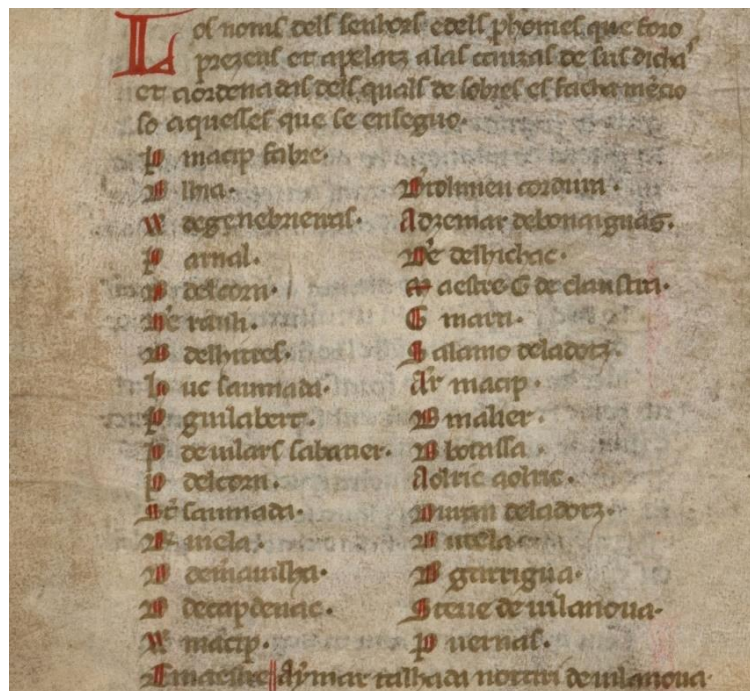 Los noms dells senhors e dells phomes que foro
prezens et apelatz a las cauzas de sus dicha
et aordenadas dels quals de sobres es facha mēcio
so aquelles que se enseguo.
P macip fabre.
B lhia.
W de genebrieuras.
P arnal.
B delcorn.
delhutes.
huc saumada.
P guilabert.
P de uilars sabatier.
P delcorn.
saumada.
B uiela.
B decapdenac.
W macip.
Bertolmieu cordurier.
Adzemar de bonaiguas.
Maestre G de claustra.
G marti.
Salamo deladotz.
Ar macip.
B malier.
B botassa.
Aolric aolric.
Duran deladotz.
B uitela.
B garrigua.
Steue de uilanoua.
P uernas.
maestre Aymar talhada notari de uilanoua.